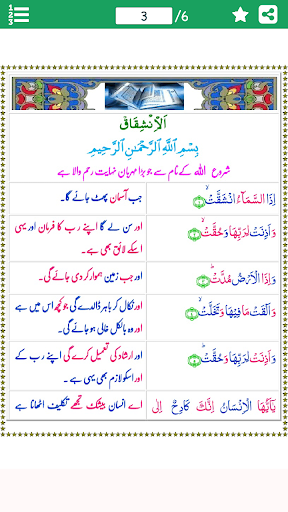 3 /6
اَلْاِنْشِقَاق
بِسْمِ اللّٰهِ الرَّحْمٰنِ الرَّحِيْمِ
شروع اللہ کے نام سے جو بڑا مہربان نہایت رحم والا ہے
اِذَا السَّمَآءُ انْشَقَّتْۙ
جب آسمان پھٹ جائے گا۔
وَ اَذِنَتْ لِرَبِّهَا وَ حُقَّتْۙ
اور سن لے گا اپنے رب کا فرمان اور یہی
اسکے لائق بھی ہے۔
وَ اِذَا الْاَرْضُ مُدَّتْۙ
اور جب زمین ہموار کر دی جائے گی۔
وَ اَلْقَتْ مَا فِيْهَا وَ تَخَلَّتْۙ
اور نکال کر باہر ڈالدے گی جو کچھ اس میں ہے
اور وہ بالکل خالی ہو جائے گی۔
وَ اَذِنَتْ لِرَبِّهَا وَ حُقَّتْؕ
اور ارشاد کی تعمیل کرے گی اپنے رب کے
اور اسکو لازم بھی یہی ہے۔
يٰۤاَيُّهَا الْاِنْسَانُ اِنَّكَ كَادِحٌ اِلٰى
اے انسان بیشک تجھے تکلیف اٹھانا ہے